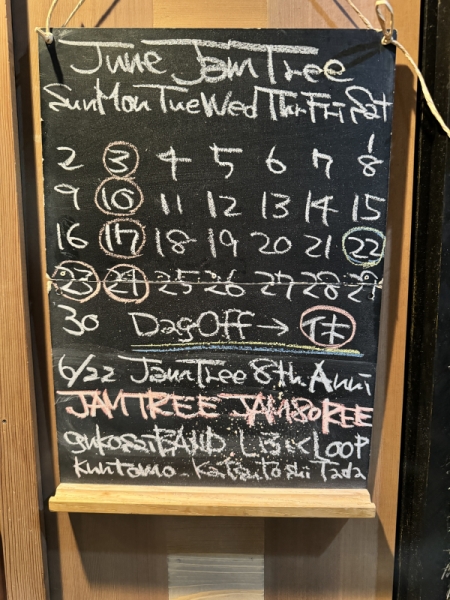 June JamTree
Sun Mon Tue Wed Thr Fri Sat
1
2 3 4 5 6 7 8
9 10 11 12 13 14 15
16 17 18 19 20 21 22
23 24 25 26 27 28 29
30 Day Off → 休
6/22 JamTree 8th Anni
JAMTREE JAMBOREE
BAND LOOP
Kuntamo Toshi Tada